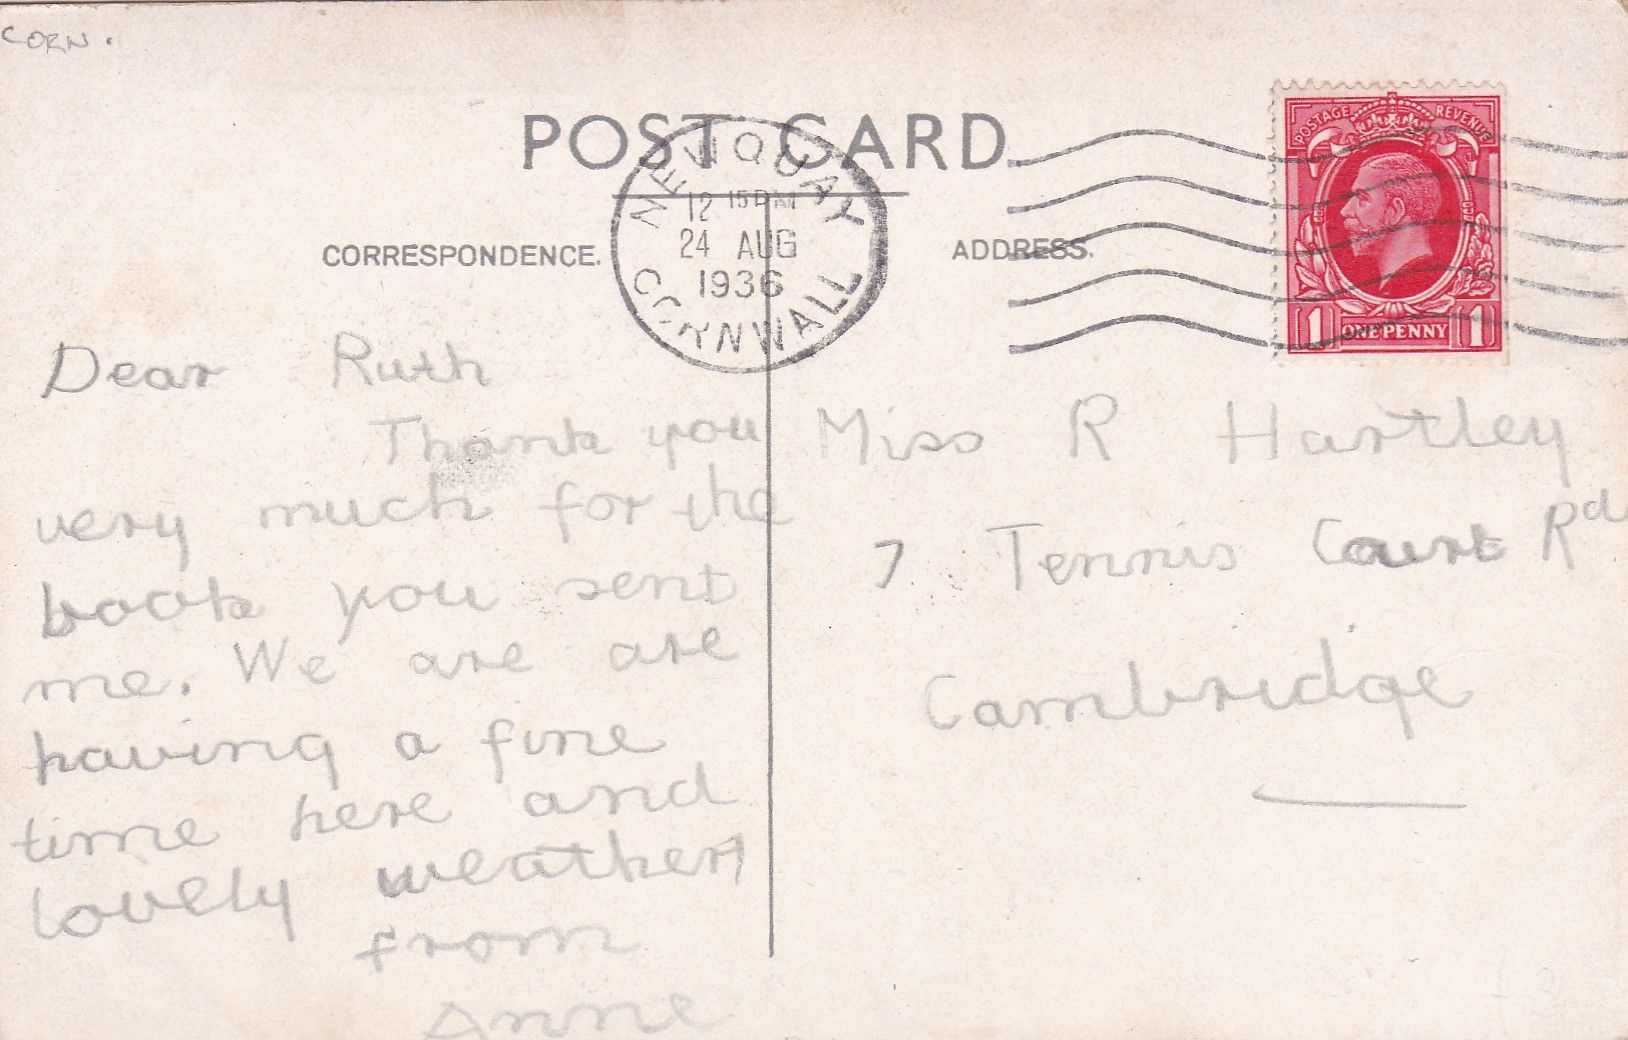 CORN.
POST CARD.
NEWQUAY
12 15 PM
24 AUG
1936
CORNWALL
POSTAGE REVENUE
1 ONE PENNY 1
CORRESPONDENCE.
Dear Ruth
Thank you
very much for the
book you sent
me. We are are
having a fine
time here and
lovely weather
from
Anne
ADDRESS.
Miss R Hartley
7 Tennis Court Rd
Cambridge